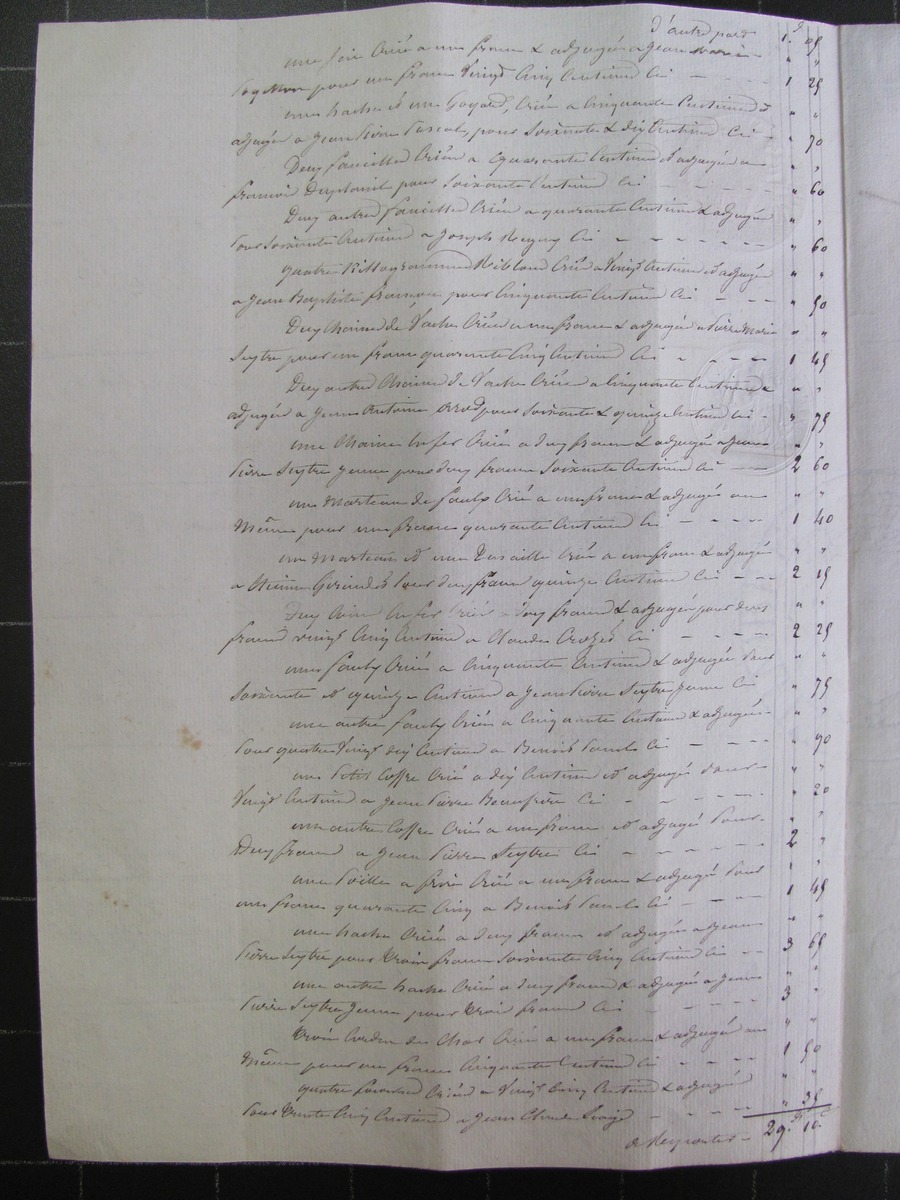 d'autre part 1. 05
une scie Criée a un franc & adjugée a Jean Marie " "
pour un franc Vingt Cinq Centimes Ci - - - - 1 25
une hache et un Goyard, Criés a Cinquante Centimes & " "
adjugés a Jean Pierre Pascal, pour Soixante & dix Centimes Ci - " 70
Deux faucilles Criées a Quarante Centimes et adjugées a " "
francois Duplomb pour Soixante Centimes Ci - - - - " 60
Deux autres faucilles Criées a quarante Centimes & adjugées " "
pour Soixante Centimes a Joseph Reguy Ci - - - - " 60
quatre Killogrammes Criés a Vingt Centimes et adjugés " "
a Jean Baptiste françois pour Cinquante Centimes Ci - - - " 50
Deux Chaines de Vache Criées a un franc & adjugées a Pierre Marie " "
Seytre pour un franc quarante Cinq Centimes Ci - - - - 1 45
Deux autres Chaines de Vache Criées a Cinquante Centimes & " "
adjugées a Jean Antoine pour Soixante & quinze Centimes Ci - " 75
une Chaine en fer Criée a deux francs & adjugée a Jean " "
Pierre Seytre jeune pour deux francs Soixante Centimes Ci - - 2 60
un Marteau de faulx Crié a un franc & adjugé au " "
Même pour un franc quarante Centimes Ci - - - - 1 40
un Marteau et une Tenaille Criés a un franc & adjugés " "
a Etienne pour deux francs quinze Centimes Ci - - - 2 15
Deux en fer Criés a deux francs & adjugés pour deux " "
francs vingt Cinq Centimes a Claude Crozet Ci - - - - 2 25
une faulx Criée a Cinquante Centimes & adjugée pour " "
Soixante et quinze Centimes a Jean Pierre Seytre jeune Ci " 75
une autre faulx Criée a Cinquante Centimes & adjugée " "
pour quatre Vingt dix Centimes a Benoit Ci - - - - " 90
un Petit Coffre Crié a dix Centimes et adjugé pour " "
Vingt Centimes a Jean Pierre Beaufrère Ci - - - - " 20
un autre Coffre Crié a un franc et adjugé pour " "
Deux francs a Jean Pierre Seytre Ci - - - - 2 "
une Poille a frire Criée a un franc & adjugée pour " "
un franc quarante Cinq a Benoit Ci - - - - 1 45
une hache Criée a deux francs et adjugée a Jean " "
Pierre Seytre pour trois francs Soixante Cinq Centimes Ci - - 3 65
une autre hache Criée a deux francs & adjugée a Jean " "
Pierre Seytre Jeune pour trois francs Ci - - - - 3 "
trois Cordes de Char Criées a un franc & adjugées au " "
Même pour un franc Cinquante Centimes Ci - - - - 1 50
quatre Criées a Vingt Cinq Centimes & adjugées " "
pour trente Cinq Centimes a Jean Claude - - - - " 35
a Reporter - 29. 10